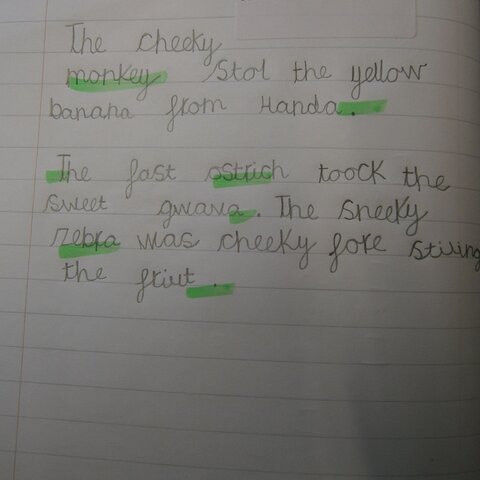 The cheeky
monkey Stol the yellow
banana from Handa.
The fast ostrich toock the
sweet gwava. The sneeky
zebra was cheeky fore stiling
the friut.